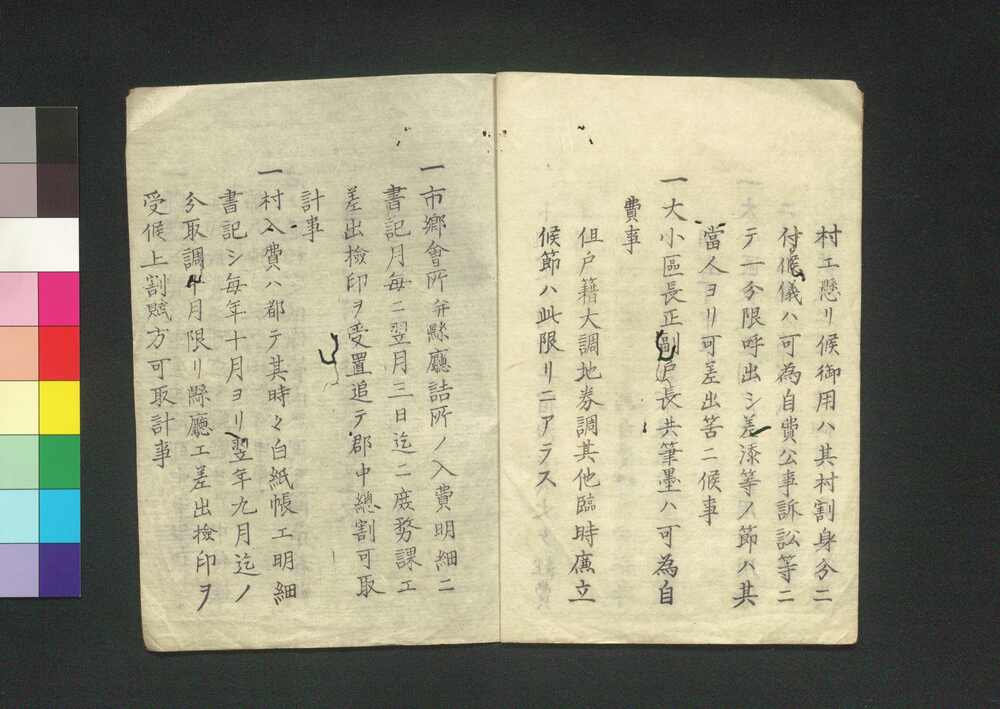 村エ懸リ候御用ハ其村割身分ニ
付候儀ハ可為自費公事訴訟等ニ
テ一分限呼出シ差添等ノ節ハ其
當人ヨリ可差出筈ニ候事
一大小區長正副戸長共筆墨ハ可為自
費事
但戸籍大調地券調其他臨時廉立
候節ハ此限リニアラス
一市郷會所并縣廳詰所ノ入費明細ニ
書記月毎ニ翌月三日迄ニ庶務課エ
差出檢印ヲ受置追テ郡中總割可取
計事
一村入費ハ都テ其時々白紙帳エ明細
書記シ毎年十月ヨリ翌年九月迄ノ
分取調十月限リ縣廳エ差出檢印ヲ
受候上割賦方可取計事